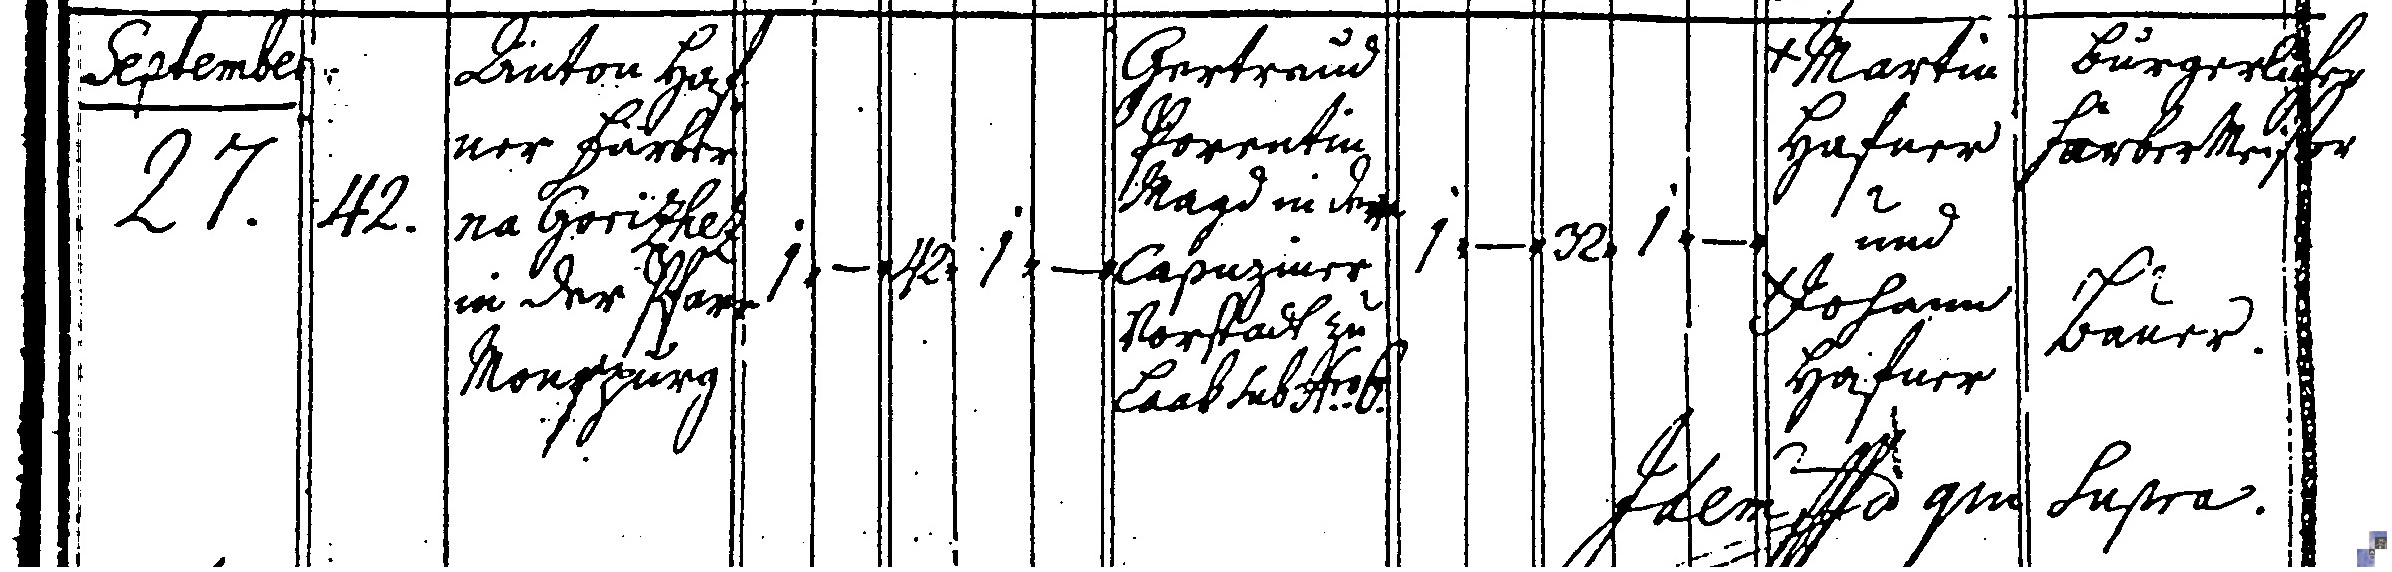 September
27.
42.
Anton Haf
ner Färber
na Gorizhez
in der Pfarr
Monspurg
1 — 42 1 —
Gertraud
Porentin
Magd in der
Capuziner
Vorstadt zu
Laab sub Nro 6.
1 — 32 1 —
+ Martin
Hafner
und
+ Johann
Hafner
Bürgerlicher
Färber Meister
Bauer.
Idem qui Supra.